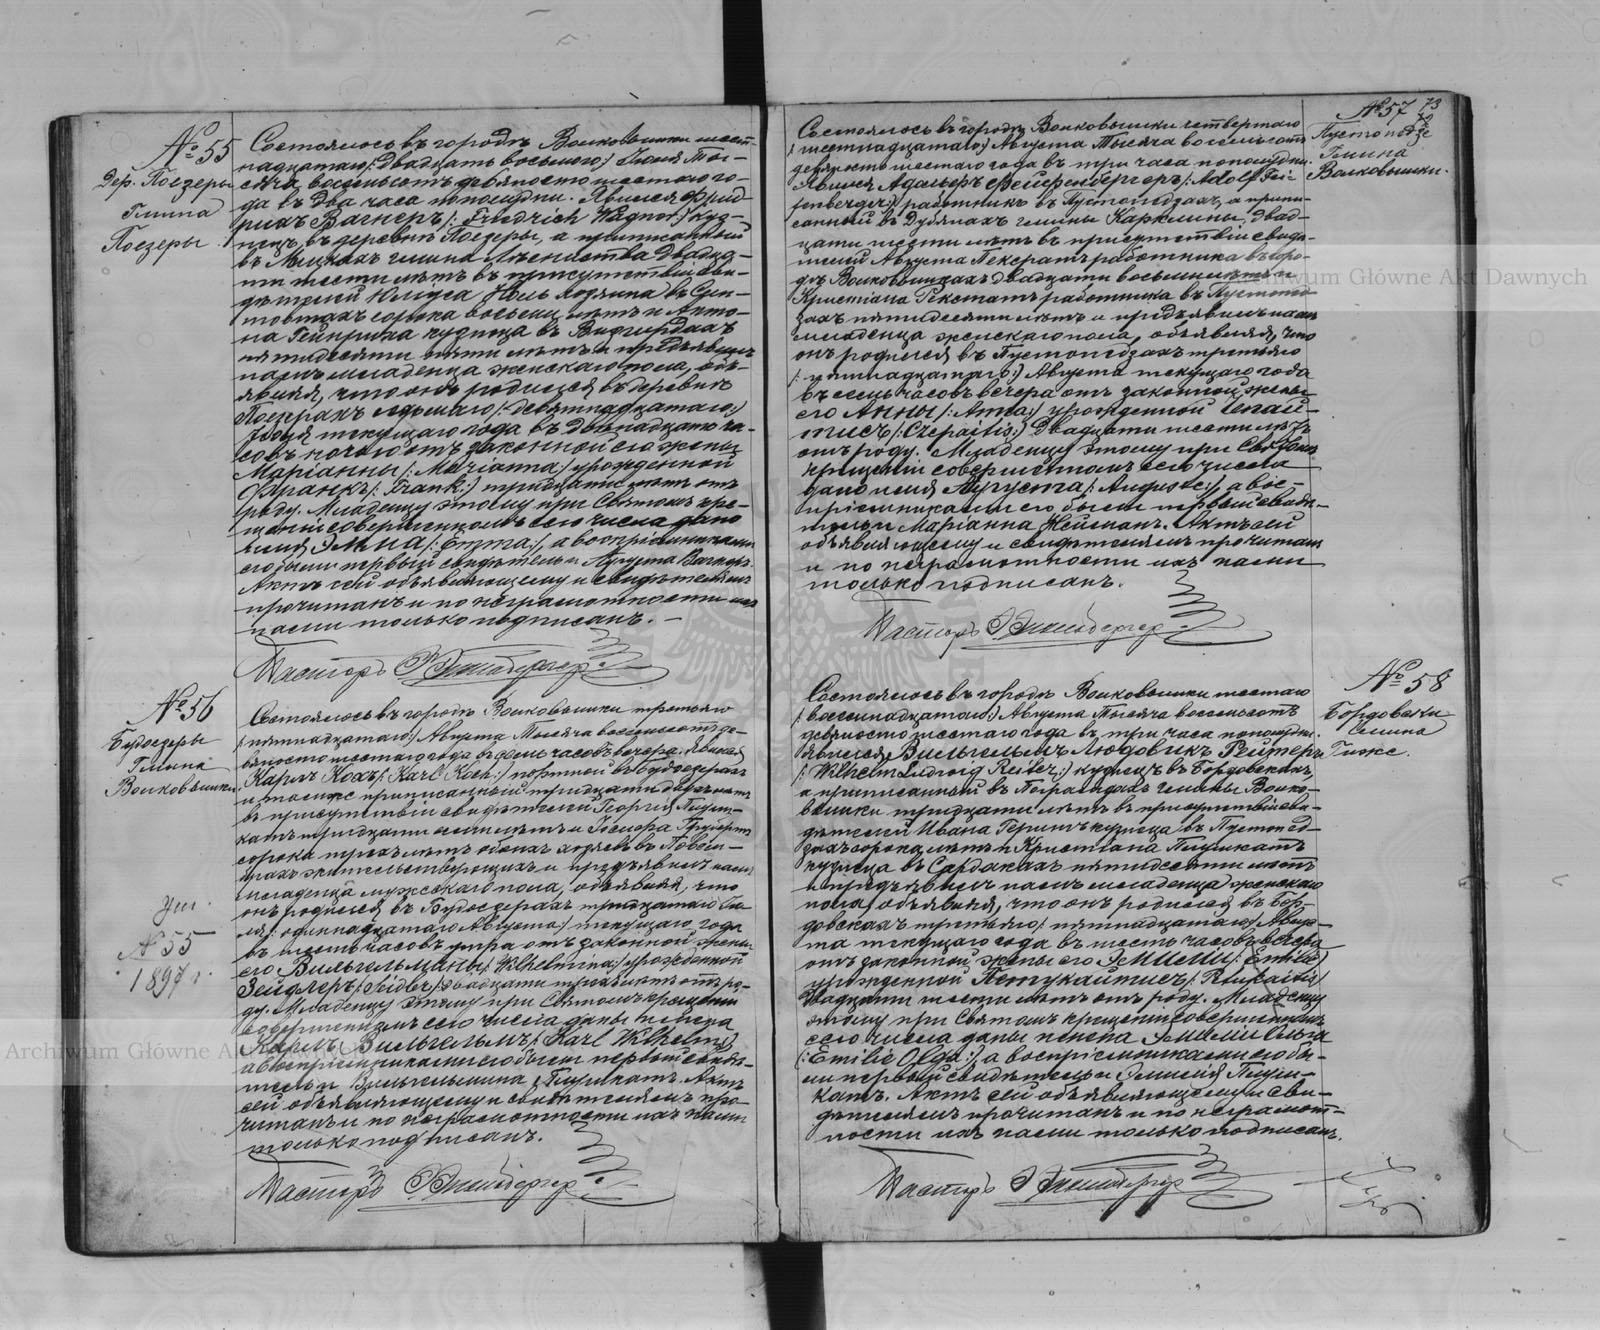 № 55
Дер. Поезеры
Гмина
Поезеры
Состоялось въ городѣ Волковышки шест-
надцатаго /: двадцать восьмого:/ Іюля Ты-
сяча восемьсотъ девяносто шестого го-
да въ два часа пополудни. Явился Фрид-
рихъ Вагнеръ /: Friedrich Wagner:/ куз-
нецъ въ деревнѣ Поезеры, а приписанный
въ гмина двадца-
ти шести лѣтъ въ присутствіи сви-
дѣтелей Юлiуса хозяина въ
сорока восьми лѣтъ и Анто-
на Гейнриха кузнеца въ
пятидесяти пяти лѣтъ и предъявилъ
намъ младенца женскаго пола, объ-
являя, что онъ родился въ деревнѣ
Поезерахъ седьмаго /: девятнадцатаго:/
Іюля текущаго года въ двѣнадцать ча-
совъ ночи отъ законной его жены
Маріанны /: Marianna:/ урожденной
Франкъ /: Frank:/ тридцати лѣтъ отъ
роду. Младенцу этому при Святомъ кре-
щеніи совершенномъ сего числа дано
имя Эмма /: Emma:/, а воспріемниками
его были первый свидѣтель и Августа Вагнеръ.
Актъ сей объявляющему и свидѣтелямъ
прочитанъ и по неграмотности ихъ
нами только подписанъ. —
Пасторъ
№ 56
Будвезеры
Гмина
Волковышки
Ум.
№ 55
1897 г.
Состоялось въ городѣ Волковышки третьяго
/: пятнадцатаго:/ Августа Тысяча восемьсотъ де-
вяносто шестого года въ семь часовъ вечера. Явился
Карлъ Кохъ /: Karl Koch:/ портной въ Будвезерахъ
и тамже приписанный тридцати двухъ лѣтъ
въ присутствіи свидѣтелей Георгія
тридцати семи лѣтъ и Іосифа
сорока трехъ лѣтъ обоихъ хозяевъ въ
жительствующихъ и предъявилъ намъ
младенца мужескаго пола, объявляя, что
онъ родился въ Будвезерахъ тридцатаго Ію-
ля /: одиннадцатаго Августа:/ текущаго года
въ шесть часовъ утра отъ законной жены
его Вильгельмины /: Wilhelmina:/ урожденной
Зейдлеръ /: Seidler:/ двадцати трехъ лѣтъ отъ ро-
ду. Младенцу этому при Святомъ крещеніи
совершенномъ сего числа даны имена
Карлъ Вильгельмъ /: Karl Wilhelm:/
а воспріемниками его были первый свидѣ-
тель и Вильгельмина Актъ
сей объявляющему и свидѣтелямъ про-
читанъ и по неграмотности ихъ нами
только подписанъ.
Пасторъ
№ 57 73
Пустопедзе
Гмина
Волковышки.
Состоялось въ городѣ Волковышки четвертаго
/: шестнадцатаго:/ Августа Тысяча восемьсотъ
девяносто шестого года въ три часа пополудни.
Явился Адольфъ Фейфенбергеръ /: Adolf Fei-
fenberger:/ работникъ въ Пустопедзахъ, а припи-
санный въ Дубянахъ гмины Карклины, двад-
цати шести лѣтъ въ присутствіи свидѣ-
телей Августа работника въ горо-
дѣ Волковышкахъ двадцати восьми лѣтъ и
Кристіана работника въ Пустопе-
дзахъ пятидесяти лѣтъ и предъявилъ намъ
младенца женскаго пола, объявляя, что
онъ родился въ Пустопедзахъ третьяго
/: пятнадцатаго:/ Августа текущаго года
въ семь часовъ вечера отъ законной жены
его Анны /: Anna:/ урожденной Чепай-
тисъ /: Czepaitis:/ двадцати шести лѣтъ
отъ роду. Младенцу этому при Святомъ
крещеніи совершенномъ сего числа
дано имя Августа /: Auguste:/, а вос-
пріемниками его были первый свидѣ-
тель и Маріанна Нейманъ. Актъ сей
объявляющему и свидѣтелямъ прочитанъ
и по неграмотности ихъ нами
только подписанъ.
Пасторъ
№ 58
Бордовски
Гмина
Состоялось въ городѣ Волковышки шестаго
/: восемнадцатаго:/ Августа Тысяча восемьсотъ
девяносто шестого года въ три часа пополудни.
Явился Вильгельмъ Людовикъ Рейтеръ
/: Wilhelm Ludwig Reiter:/ кузнецъ въ Бордовскихъ,
а приписанный въ гмины Волко-
вышки тридцати лѣтъ въ присутствіи сви-
дѣтелей Ивана кузнеца въ Пустопед-
захъ сорока лѣтъ и Кристіана
кузнеца въ Сардакахъ пятидесяти лѣтъ
и предъявилъ намъ младенца женскаго
пола, объявляя, что онъ родился въ Бор-
довскахъ третьяго /: пятнадцатаго:/ Авгус-
та текущаго года въ шесть часовъ вечера
отъ законной жены его Эмиліи /: Emilie:/
урожденной Петукайтисъ /: Petukaitis:/
двадцати шести лѣтъ отъ роду. Младенцу
этому при Святомъ крещеніи совершенномъ
сего числа даны имена Эмилія Ольга
/: Emilie Olga:/, а воспріемниками его бы-
ли первый свидѣтель и Эмилія
Актъ сей объявляющему и сви-
дѣтелямъ прочитанъ и по неграмот-
ности ихъ нами только подписанъ.
Пасторъ
Archiwum Główne Akt Dawnych
Archiwum Główne Akt Dawnych